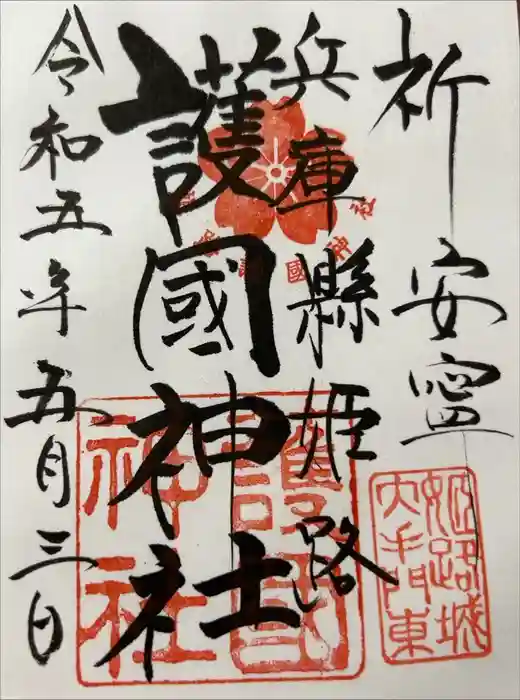 祈安寧
兵庫縣姫路
護國神社
令和五年五月三日
護国
神社
姫路城
大手門東